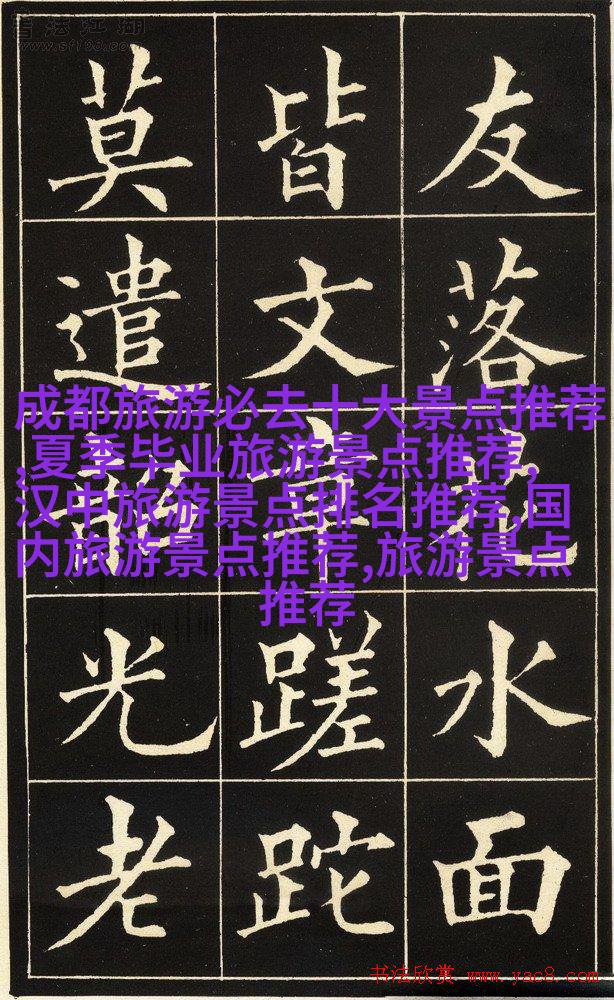 书法江湖
www.sf108.com
友落花水面
皆文章蹉跎
莫遣韶光老
成都旅游必去十大景点推荐
,夏季毕业旅游景点推荐,
汉中旅游景点排名推荐,国
内旅游景点推荐,旅游景点
推荐
书法欣赏 www.yac8.com